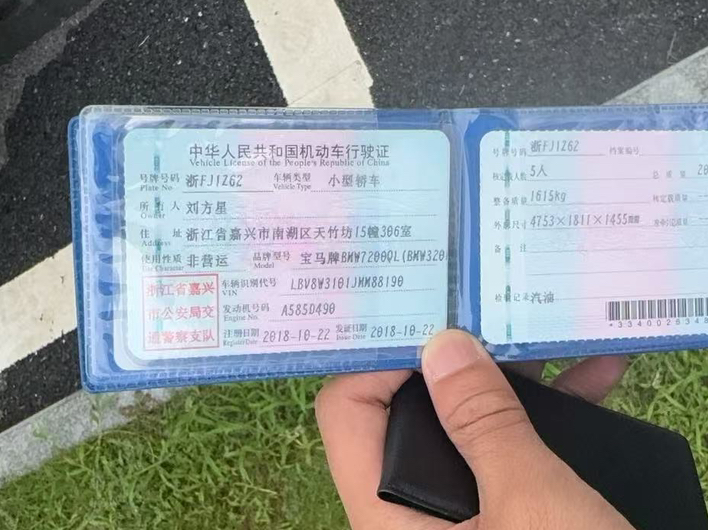 中华人民共和国机动车行驶证
Vehicle License of the People's Republic of China
号牌号码 浙FJ1Z62 车辆类型 小型轿车
Plate No. Vehicle Type
所有人 刘方星
Owner
住址 浙江省嘉兴市南湖区天竹坊15幢306室
Address
使用性质 非营运 品牌型号 宝马牌BMW7200QL(BMW320
Use Character Model
浙江省嘉兴
市公安局交
通警察支队
车辆识别代号 LBV8W3101JMM88190
VIN
发动机号码 A585D490
Engine No.
注册日期 2018-10-22 发证日期 2018-10-22
Register Date Issue Date
号牌号码 浙FJ1Z62 档案编号
核定载人数 5人 总质量 20
整备质量 1615kg 核定载质量
外廓尺寸 4753×1811×1455
备注
检验记录 汽油